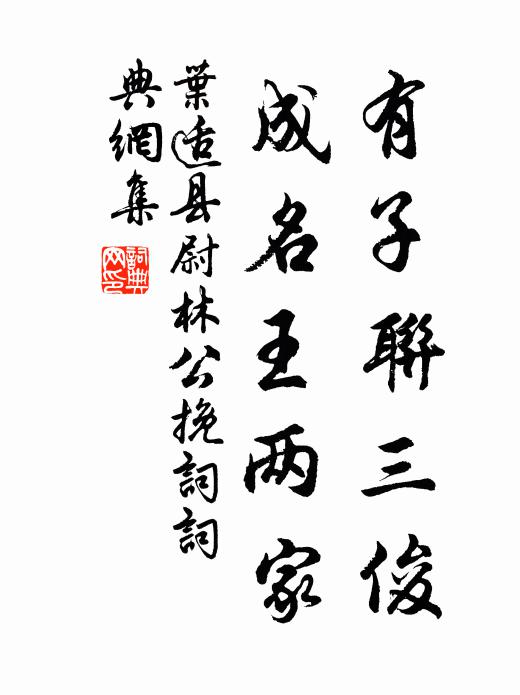 有子聯三俊
成名王两家
葉适县尉林公挽詞詞
典網集
詞典网印